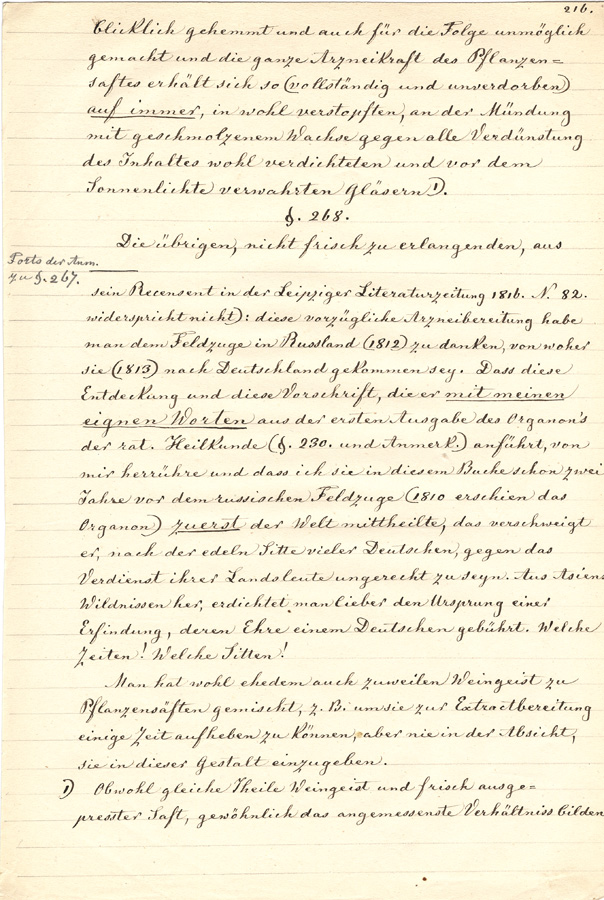 216.
blicklich gehemmt und auch für die Folge unmöglich
gemacht und die ganze Arzneikraft des Pflanzen=
saftes erhält sich so (vollständig und unverdorben)
auf immer, in wohl verstopften, an der Mündung
mit geschmolzenem Wachse gegen alle Verdünstung
des Inhaltes wohl verdichteten und vor dem
Sonnenlichte verwahrten Gläsern 1).
§. 268.
Die übrigen, nicht frisch zu erlangenden, aus
Forts der Anm.
zu §. 267.
sein Recensent in der Leipziger Literaturzeitung 1816. N. 82.
widerspricht nicht): diese vorzügliche Arzneibereitung habe
man dem Feldzuge in Russland (1812) zu danken, von woher
sie (1813) nach Deutschland gekommen sey. Dass diese
Entdeckung und diese Vorschrift, die er mit meinen
eignen Worten aus der ersten Ausgabe des Organon's
der rat. Heilkunde (§. 230. und Anmerk.) anführt, von
mir herrühre und dass ich sie in diesem Buche schon zwei
Jahre vor dem russischen Feldzuge (1810 erschien das
Organon) zuerst der Welt mittheilte, das verschweigt
er, nach der edeln Sitte vieler Deutschen, gegen das
Verdienst ihrer Landsleute ungerecht zu seyn. Aus Asiens
Wildnissen her, erdichtet man lieber den Ursprung einer
Erfindung, deren Ehre einem Deutschen gebührt. Welche
Zeiten! Welche Sitten!
Man hat wohl ehedem auch zuweilen Weingeist zu
Pflanzensäften gemischt, z. B. um sie zur Extractbereitung
einige Zeit aufheben zu können, aber nie in der Absicht,
sie in dieser Gestalt einzugeben.
1) Obwohl gleiche Theile Weingeist und frisch ausge=
presster Saft, gewöhnlich das angemessenste Verhältniss bilden